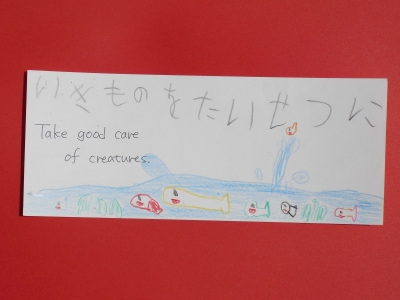 いきものをたいせつに
Take good care
of creatures.